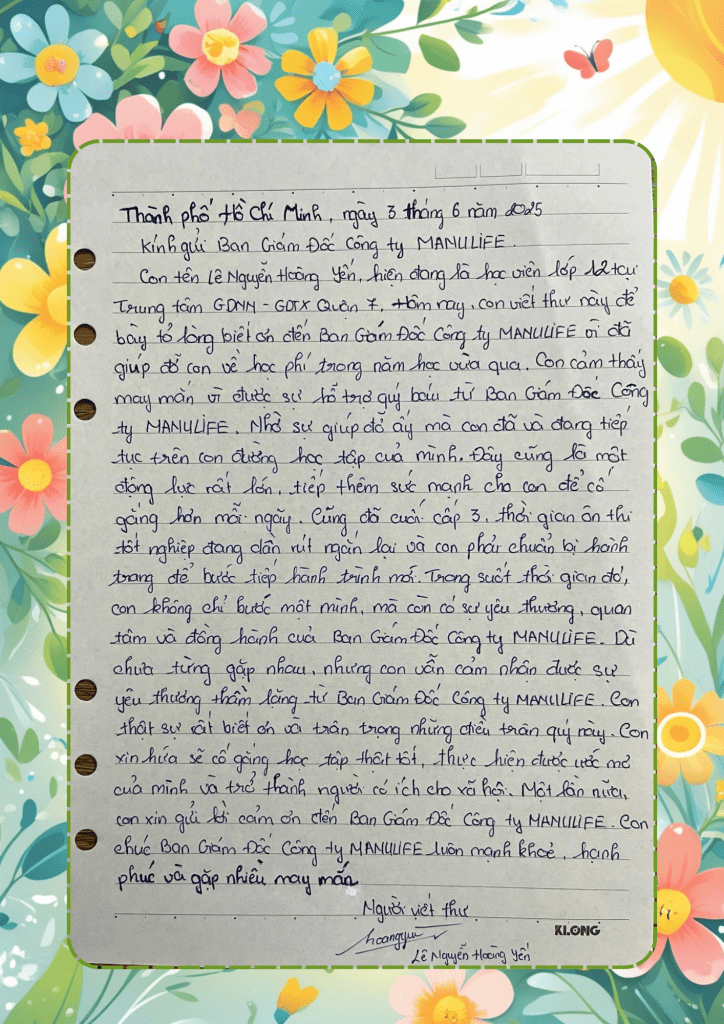 Thành phố Hồ Chí Minh, ngày 3 tháng 6 năm 2025
Kính gửi Ban Giám Đốc Công ty MANULIFE.
Con tên Lê Nguyễn Hoàng Yến, hiện đang là học viên lớp 12 tại
Trung tâm GDNN - GDTX Quận 7. Hôm nay, con viết thư này để
bày tỏ lòng biết ơn đến Ban Giám Đốc Công ty MANULIFE vì đã
giúp đỡ con về học phí trong năm học vừa qua. Con cảm thấy
may mắn vì được sự hỗ trợ quý báu từ Ban Giám Đốc Công
ty MANULIFE. Nhờ sự giúp đỡ ấy mà con đã và đang tiếp
tục trên con đường học tập của mình. Đây cũng là một
động lực rất lớn, tiếp thêm sức mạnh cho con để cố
gắng hơn mỗi ngày. Cũng đã cuối cấp 3, thời gian ôn thi
tốt nghiệp đang dần rút ngắn lại và con phải chuẩn bị hành
trang để bước tiếp hành trình mới. Trong suốt thời gian đó,
con không chỉ bước một mình, mà còn có sự yêu thương, quan
tâm và đồng hành của Ban Giám Đốc Công ty MANULIFE. Dù
chưa từng gặp nhau, nhưng con vẫn cảm nhận được sự
yêu thương thầm lặng từ Ban Giám Đốc Công ty MANULIFE. Con
thật sự rất biết ơn và trân trọng những điều trân quý này. Con
xin hứa sẽ cố gắng học tập thật tốt, thực hiện được ước mơ
của mình và trở thành người có ích cho xã hội. Một lần nữa,
con xin gửi lời cảm ơn đến Ban Giám Đốc Công ty MANULIFE. Con
chúc Ban Giám Đốc Công ty MANULIFE luôn mạnh khoẻ, hạnh
phúc và gặp nhiều may mắn
Người viết thư
Lê Nguyễn Hoàng Yến
KLONG